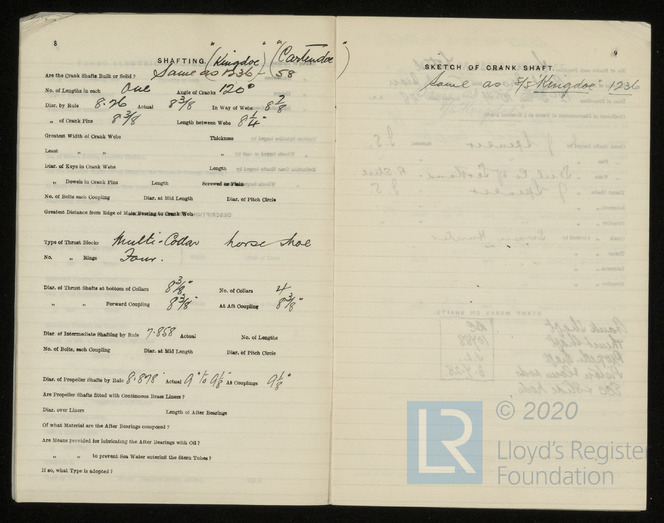 8
SHAFTING (Kingdoe) (Cartendoe)
Are the Crank Shafts Built or Solid? Same as 1236 - 58
No. of Lengths in each One Angle of Cranks 120°
Diar. by Rule 8.26 Actual 8 3/8 In Way of Webs
" of Crank Pins 8 3/8 Length between Webs 8 1/4"
Greatest Width of Crank Webs Thickness
Least " " "
Diar. of Keys in Crank Webs Length
" Dowels in Crank Pins Length Screwed or Plain
No. of Bolts each Coupling Diar. at Mid Length Diar. of Pitch Circle
Greatest Distance from Edge of Main Bearing to Crank Web
Type of Thrust Blocks Multi-Collar horse shoe
No. " Rings Four.
Diar. of Thrust Shafts at bottom of Collars 8 3/8" No. of Collars 4
" " Forward Coupling 8 3/8" At Aft Coupling 8 3/8"
Diar. of Intermediate Shafting by Rule 7.858 Actual No. of Lengths
No. of Bolts, each Coupling Diar. at Mid Length Diar. of Pitch Circle
Diar. of Propeller Shafts by Rule 8.878 Actual 9" to 9 1/8" At Couplings 9 1/8"
Are Propeller Shafts fitted with Continuous Brass Liners?
Diar. over Liners Length of After Bearings
Of what Material are the After Bearings composed?
Are Means provided for lubricating the After Bearings with Oil?
" " to prevent Sea Water entering the Stern Tubes?
If so, what Type is adopted?
9
SKETCH OF CRANK SHAFT.
Same as S/S "Kingdoe" 1236
© 2020
LR
Lloyd's Register
Foundation